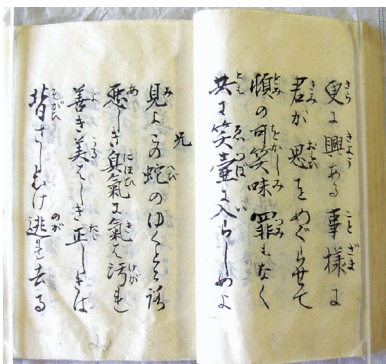 更に興ある事様に
君が思をめぐらせて
頓の可笑味罪もなく
共に笑壷に入らしめよ
兄
見よこの蛇のゆくとこ路
悪しき臭氣に氣は汚れ
善き美はしき正しきは
背さしむけ逃れ去る